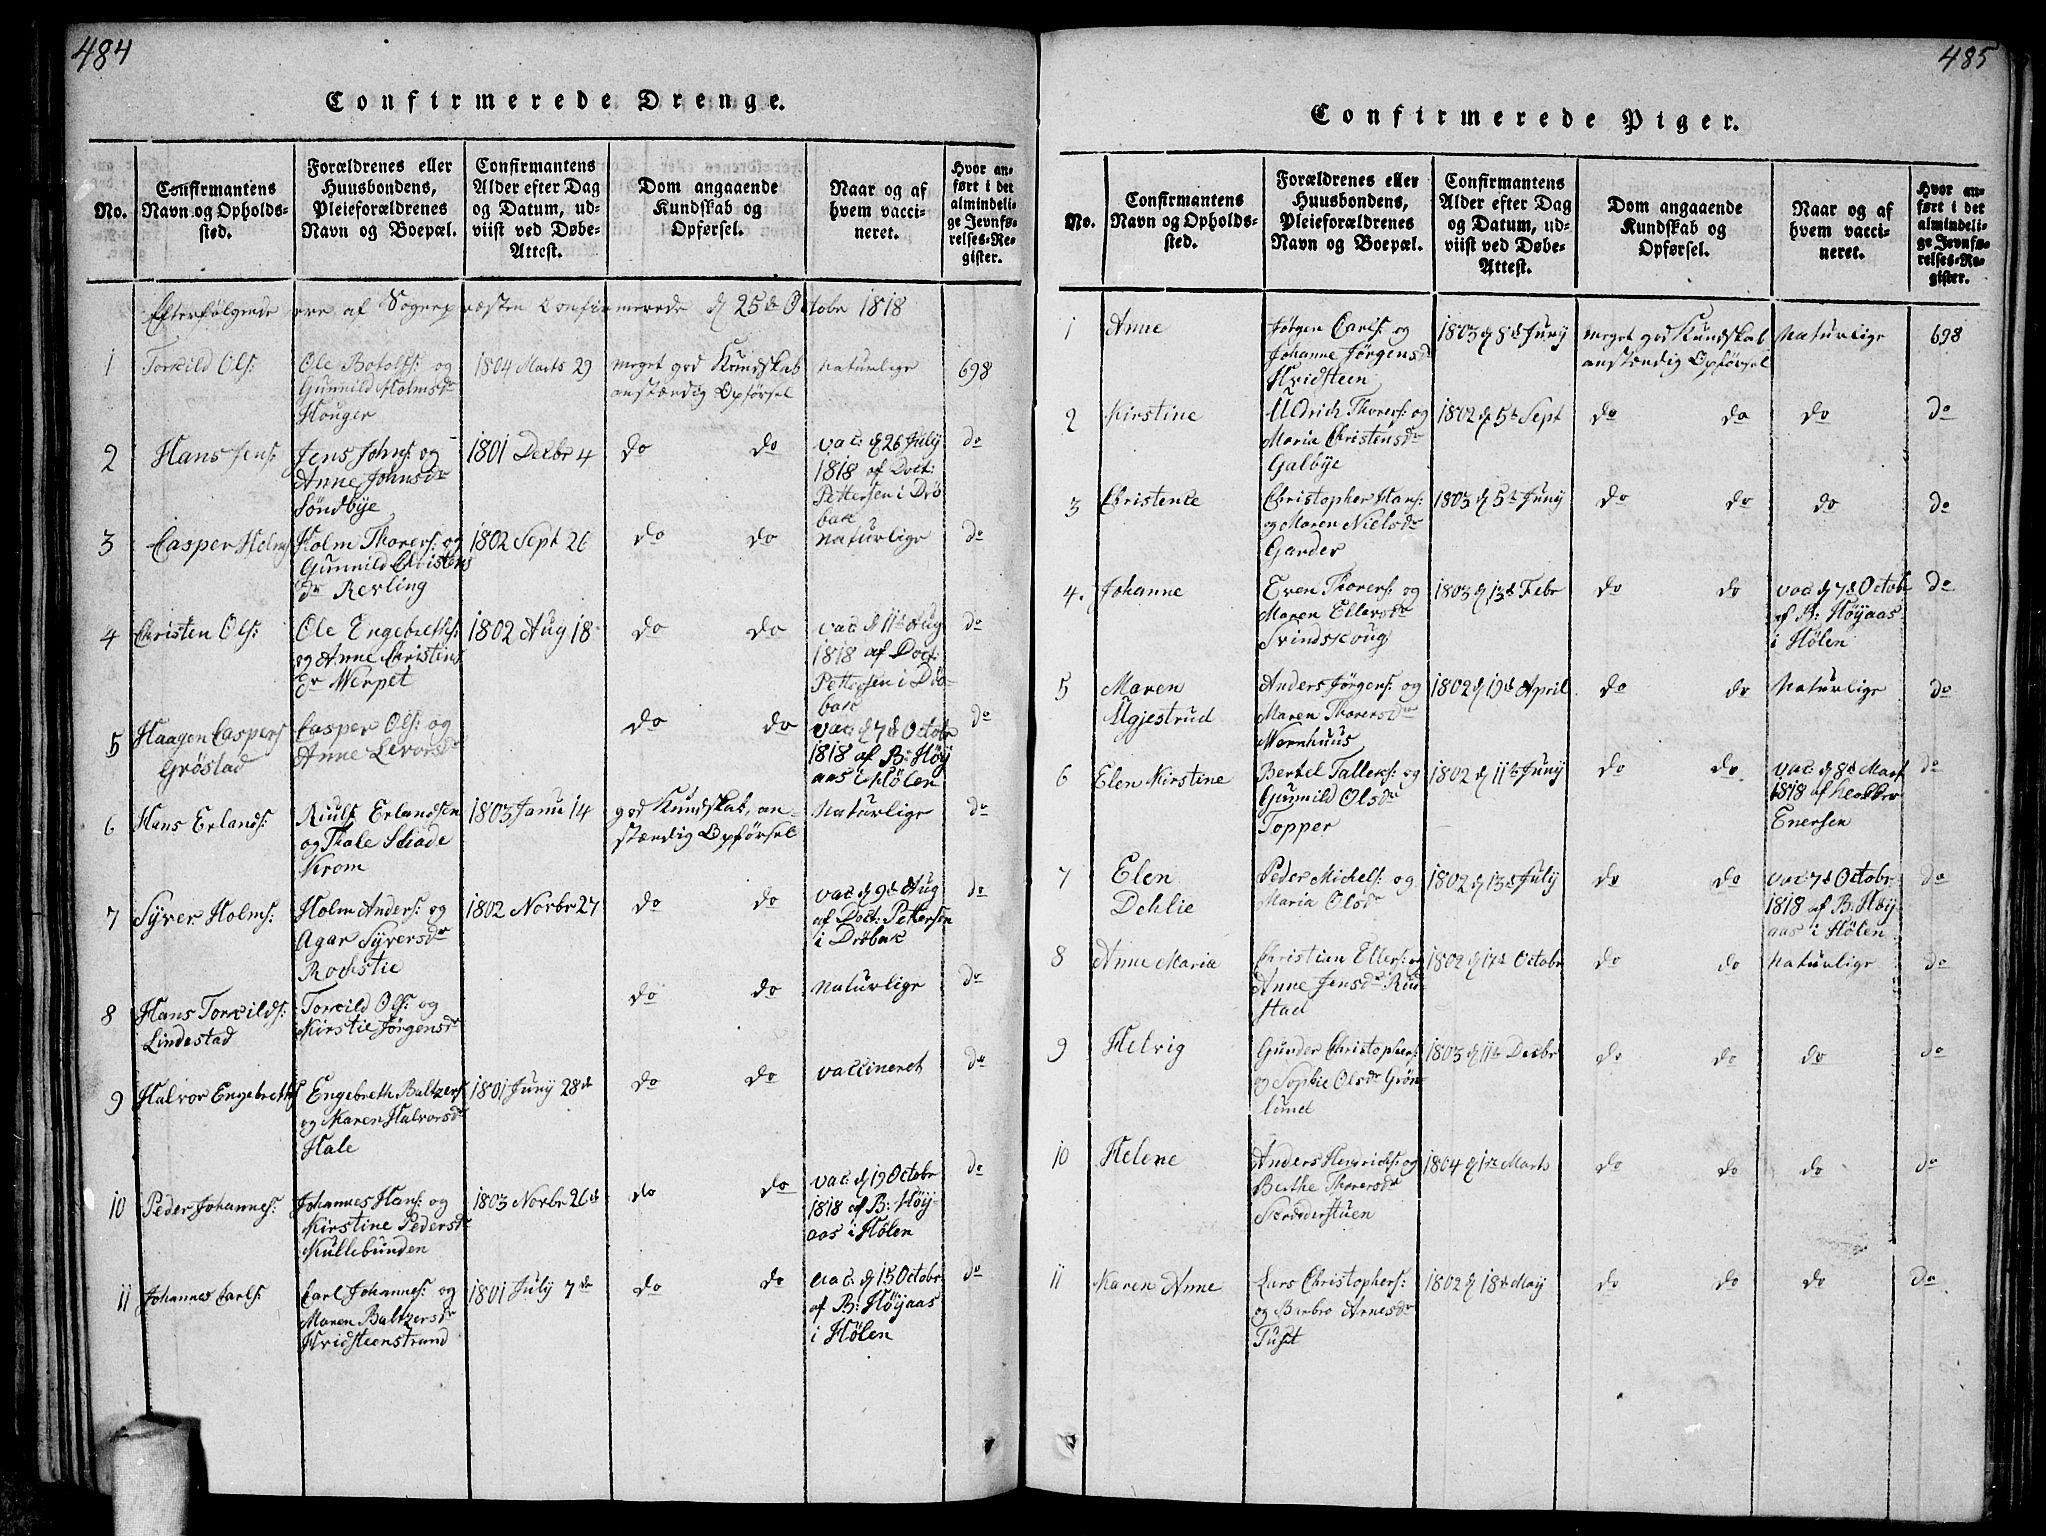 484
Confirmerede Drenge.
No.
Confirmantens
Navn og Opholds-
sted.
Forældrenes eller
Huusbondens,
Pleieforældrenes
Navn og Boepæl.
Confirmantens
Alder efter Dag
og Datum, ud-
viist ved Døbe-
Attest.
Dom angaaende
Kundskab og
Opførsel.
Naar og af
hvem vacci-
neret.
Hvor an-
ført i det
almindeli-
ge Jevnfø-
relses-Re-
gister.
Efterfølgende ere af Sognepræsten Confirmerede d 25de Octobr 1818
1
Torkild Ols:
Ole Botolfs: og
Gunnild Holmsdr
Houger
1804 Marts 29
meget god Kundskab
anstændig Opførsel
Naturlige
698
2
Hans Jens:
Jens Johns: og
Anne Johnsdr
Søndbye
1801 Decbr 4
do do
vac: d 26 July
1818 af Doct:
Pettersen i Drø
bak
do
3
Casper Holms
Holm Thorers: og
Gunnild Christens
dr Revling
1802 Sept 26
do do
Naturlige
do
4
Christen Ols:
Ole Engebreths:
og Anne Christins
dr Werpet
1802 Aug 18
do do
vac: d 11te Aug
1818 af Doct:
Pettersen i Drø-
bak
do
5
Haagen Caspers
Grøstad
Casper Ols: og
Anne Levorsdr
do do
vac: d 7de Octobr
1818 af B: Høy
aas i Hølen
do
6
Hans Erlands:
Riulf Erlandsen
og Thale Schade
Krom
1803 Janu 14
god Kundskab, an-
stændig Opførsel
Naturlige
do
7
Syver Holms:
Holm Anders: og
Agar Syversdr
Rochstie
1802 Novbr 27
do do
vac: d 9de Aug
af Doct: Pettersen
i Drøbak
do
8
Hans Torkilds:
Lindestad
Torkild Ols: og
Kirstie Jørgensdr
do do
Naturlige
do
9
Halvor Engebreths
Engebreth Baltzers
og Maren Halvorsdr
Hale
1801 Juny 28de
do do
vaccineret
do
10
Peder Johannes:
Johannes Hans: og
Kirstine Pedersdr
Kullebunden
1803 Novbr 26de
do do
vac: d 19 Octobr
1818 af B: Høy-
aas i Hølen
do
11
Johannes Carls:
Carl Johannes: og
Maren Baltzersdr
Hvidsteenstrand
1801 July 7de
do do
vac: d 15 Octobr
af B: Høyaas
i Hølen
do
485
Confirmerede Piger.
No.
Confirmantens
Navn og Opholds-
sted.
Forældrenes eller
Huusbondens,
Pleieforældrenes
Navn og Boepæl.
Confirmantens
Alder efter Dag
og Datum, ud-
viist ved Døbe-
Attest.
Dom angaaende
Kundskab og
Opførsel.
Naar og af
hvem vacci-
neret.
Hvor an-
ført i det
almindeli-
ge Jevnfø-
relses-Re-
gister.
1
Anne
Jørgen Carls: og
Johanne Jørgensd
Hvidsteen
1803 d 8de Juny
meget god Kundskab
anstændig Opførsel
Naturlige
698
2
Kirstine
Uldrich Thorers: og
Maria Christensdr
Galbye
1802 d 5te Sept
do do
do
do
3
Christense
Christopher Hans:
og Maren Nielsdr
Garder
1803 d 5te Juny
do do
do
do
4.
Johanne
Even Thorers: og
Maren Ellersdr
Svindskoug
1803 d 13de Febr
do do
vac d 7de Octobr
af B: Høyaas
i Hølen
do
5
Maren
Ugjestrud
Anders Jørgens: og
Maren Thorersdr
Wernhuus
1802 d 19de April
do do
Naturlige
do
6
Elen Kirstine
Bertel Talleks: og
Gunnild Olsdr
Topper
1802 d 11te Juny
do do
vac: d 8de Mart
1818 af Klokker
Enersen
do
7
Elen
Dehlie
Peder Michels: og
Maria Olsdr
1802 d 13de July
do do
vac: 7de Octobr
1818 af B: Høy-
aas i Hølen
do
8
Anne Maria
Christian Ellers: og
Anne Jensdr Ruu-
stad
1802 d 17de Octobr
do do
Naturlige
do
9
Helvig
Gunder Christophers:
og Sophie Olsdr Grøn-
lund
1803 d 11te Decbr
do do
do
do
10
Helene
Anders Hendrichs: og
Berthe Thorersdr
1804 d 1ste Marts
do do
do
do
11
Karen Anne
Lars Christophers:
og Berbro Arnesdr
Tuset
1802 d 18de May
do do
do
do